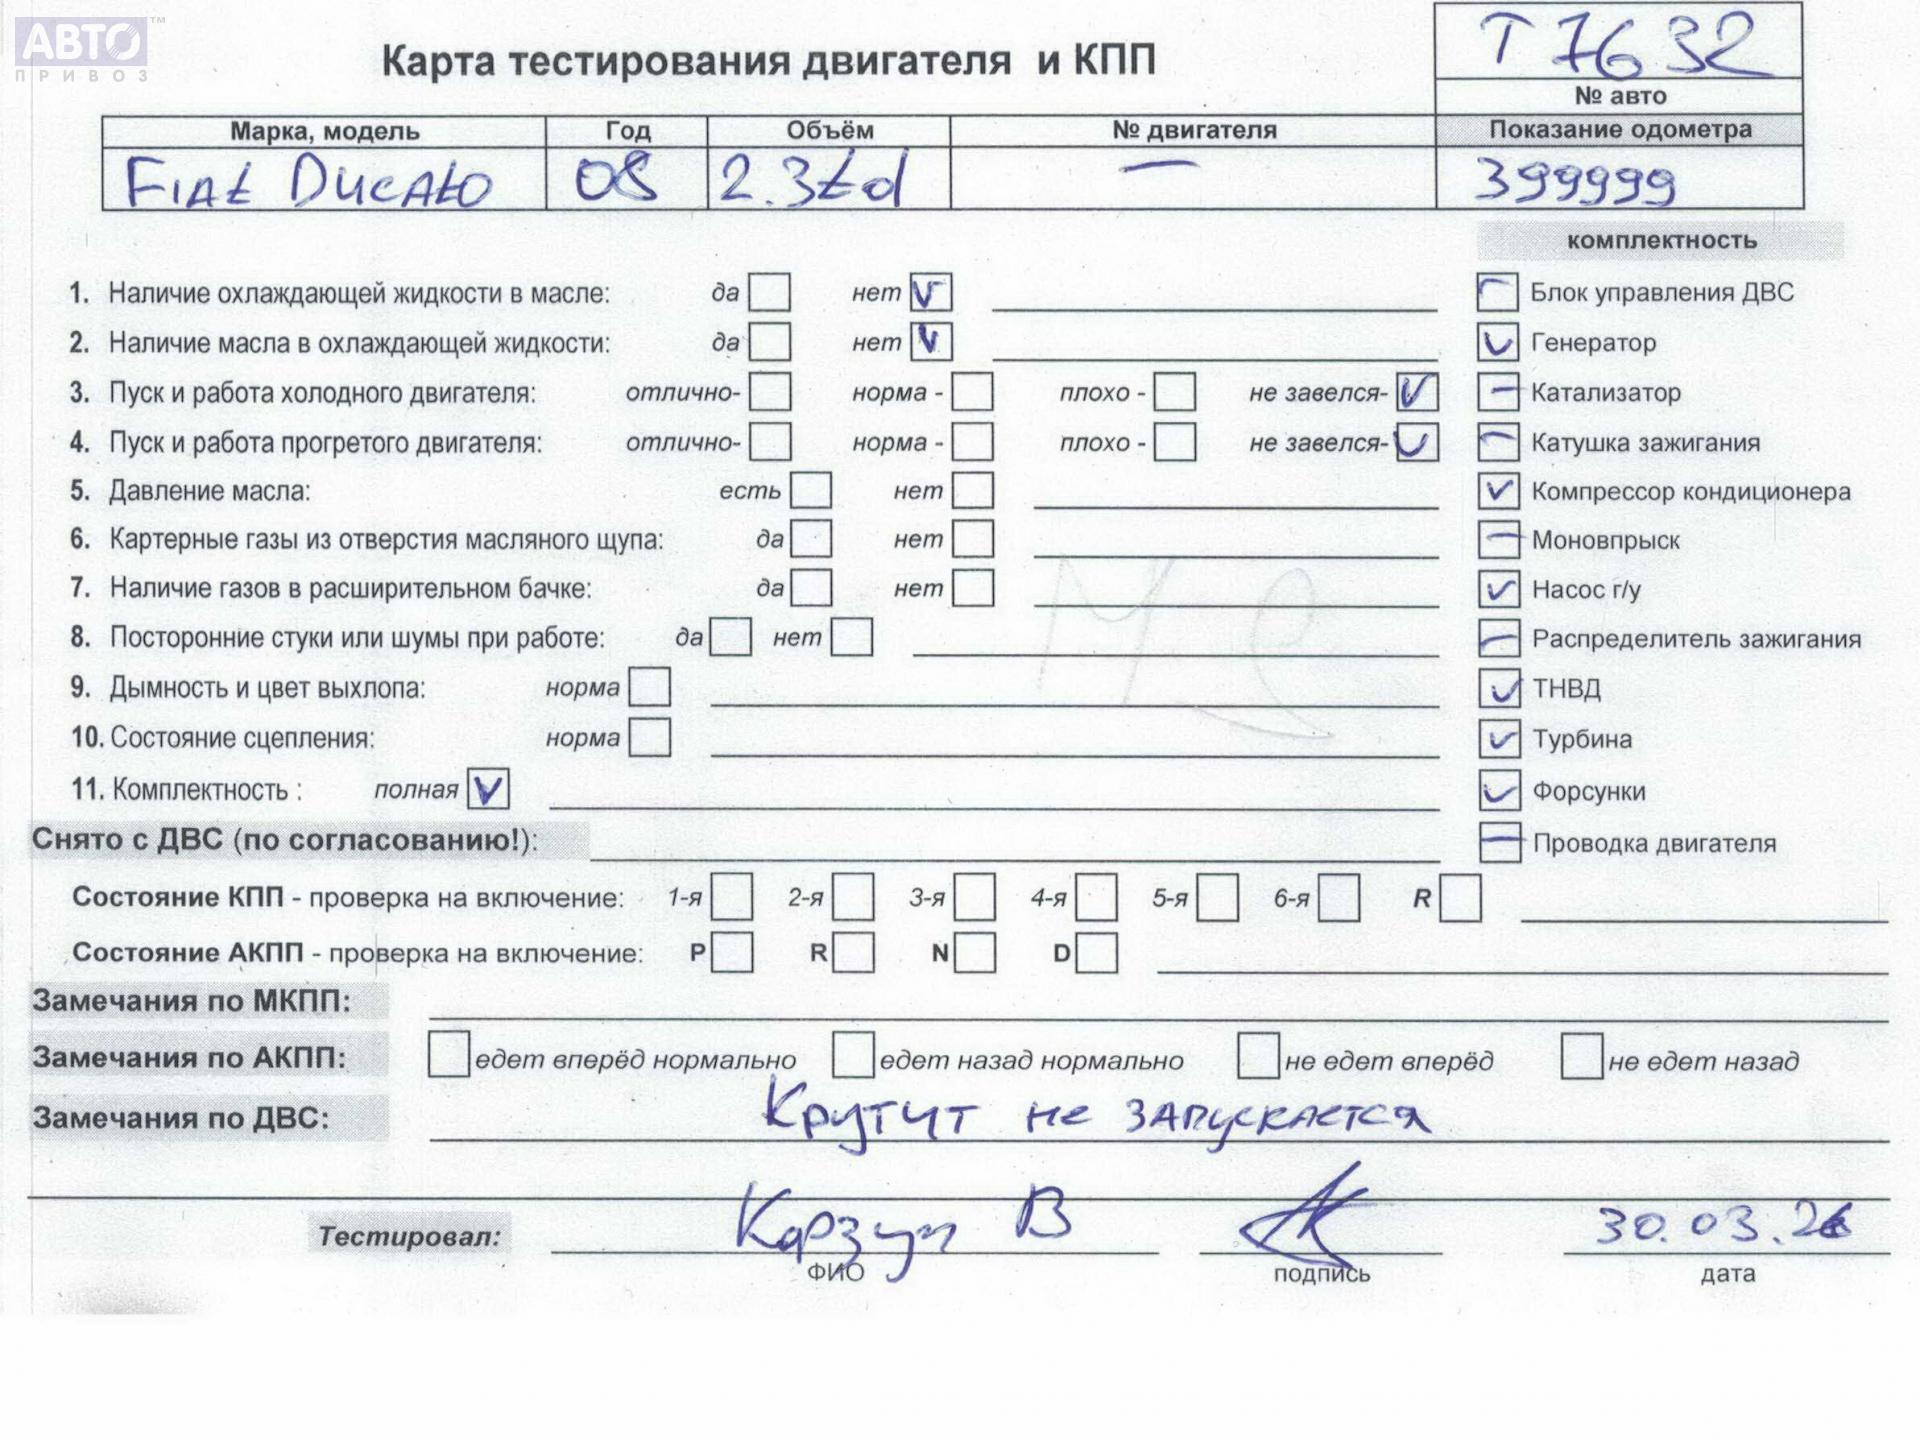 АВТО ™
ПРИВОЗ
Карта тестирования двигателя и КПП
T 7632
№ авто
Марка, модель Год Объём № двигателя Показание одометра
Fiat Ducato 08 2.3td — 399999
комплектность
1. Наличие охлаждающей жидкости в масле: да нет V
Блок управления ДВС
2. Наличие масла в охлаждающей жидкости: да нет V
Генератор
3. Пуск и работа холодного двигателя: отлично- норма - плохо - не завелся- V
Катализатор
4. Пуск и работа прогретого двигателя: отлично- норма - плохо - не завелся- V
Катушка зажигания
5. Давление масла: есть нет
Компрессор кондиционера
6. Картерные газы из отверстия масляного щупа: да нет
Моновпрыск
7. Наличие газов в расширительном бачке: да нет
Насос г/у
8. Посторонние стуки или шумы при работе: да нет
Распределитель зажигания
9. Дымность и цвет выхлопа: норма
ТНВД
10. Состояние сцепления: норма
Турбина
11. Комплектность : полная V
Форсунки
Снято с ДВС (по согласованию!):
Проводка двигателя
Состояние КПП - проверка на включение: 1-я 2-я 3-я 4-я 5-я 6-я R
Состояние АКПП - проверка на включение: P R N D
Замечания по МКПП:
Замечания по АКПП: едет вперёд нормально едет назад нормально не едет вперёд не едет назад
Замечания по ДВС: Крутит не запускается
Тестировал: Корзун В 30.03.26
ФИО подпись дата